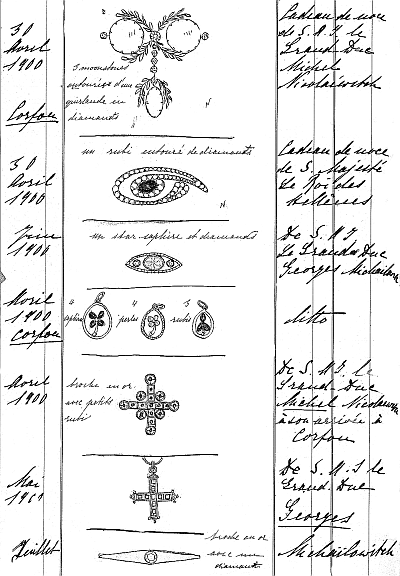 30
Avril
1900
Corfou
3 moonstones
entourées d'une
guirlande en
diamants
Cadeau de noce
de S. A. I. le
Grand Duc
Michel
Nicolaïewitch
30
Avril
1900
un rubi entouré de diamants
Cadeau de noce
de S. Majesté
Le Roi des
Hellènes
Juin
1900
un star-saphire et diamants
De S. A. I.
Le Grand Duc
Georges
Avril
1900
Corfou
4 saphirs
4 perles
3 rubis
ditto
Avril
1900
broche en or
avec petits
rubi
De S. A. I. le
Grand Duc
Michel
à son arrivée à
Corfou
Mai
De S. A. I. le
Grand Duc
Georges
Michailowitch
Juillet
broche en or
avec un
diamant